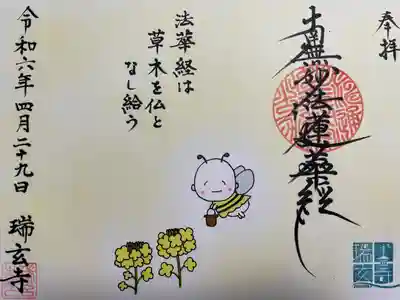 奉拝
南無妙法蓮華経
法華経は
草木を仏と
なし給う
令和六年四月二十九日
瑞玄寺